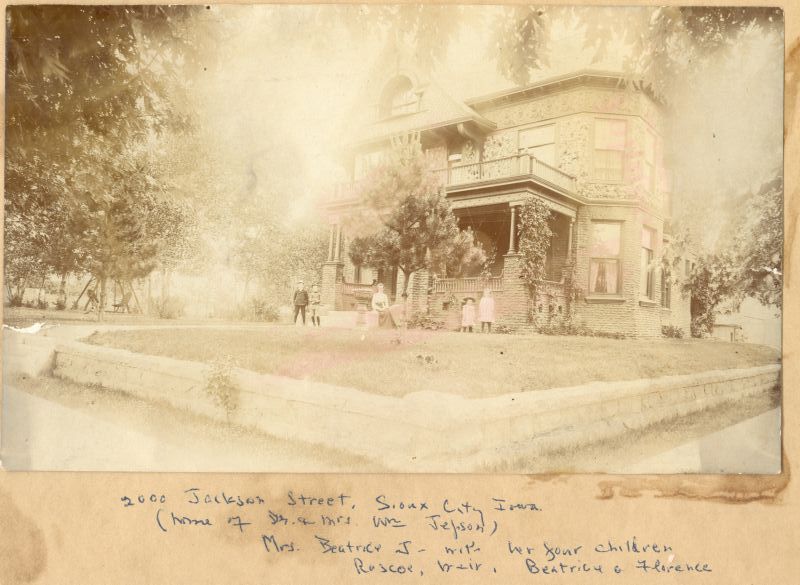 2000 Jackson Street, Sioux City Iowa.
(home of Dr. & Mrs. Wm Jepson)
Mrs. Beatrice J - with her four children
Roscoe, Weir, Beatrice & Florence